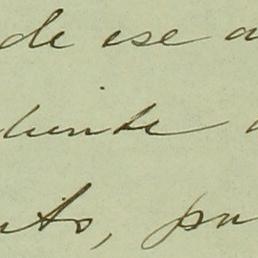 de ese a
diente a
nto, pa